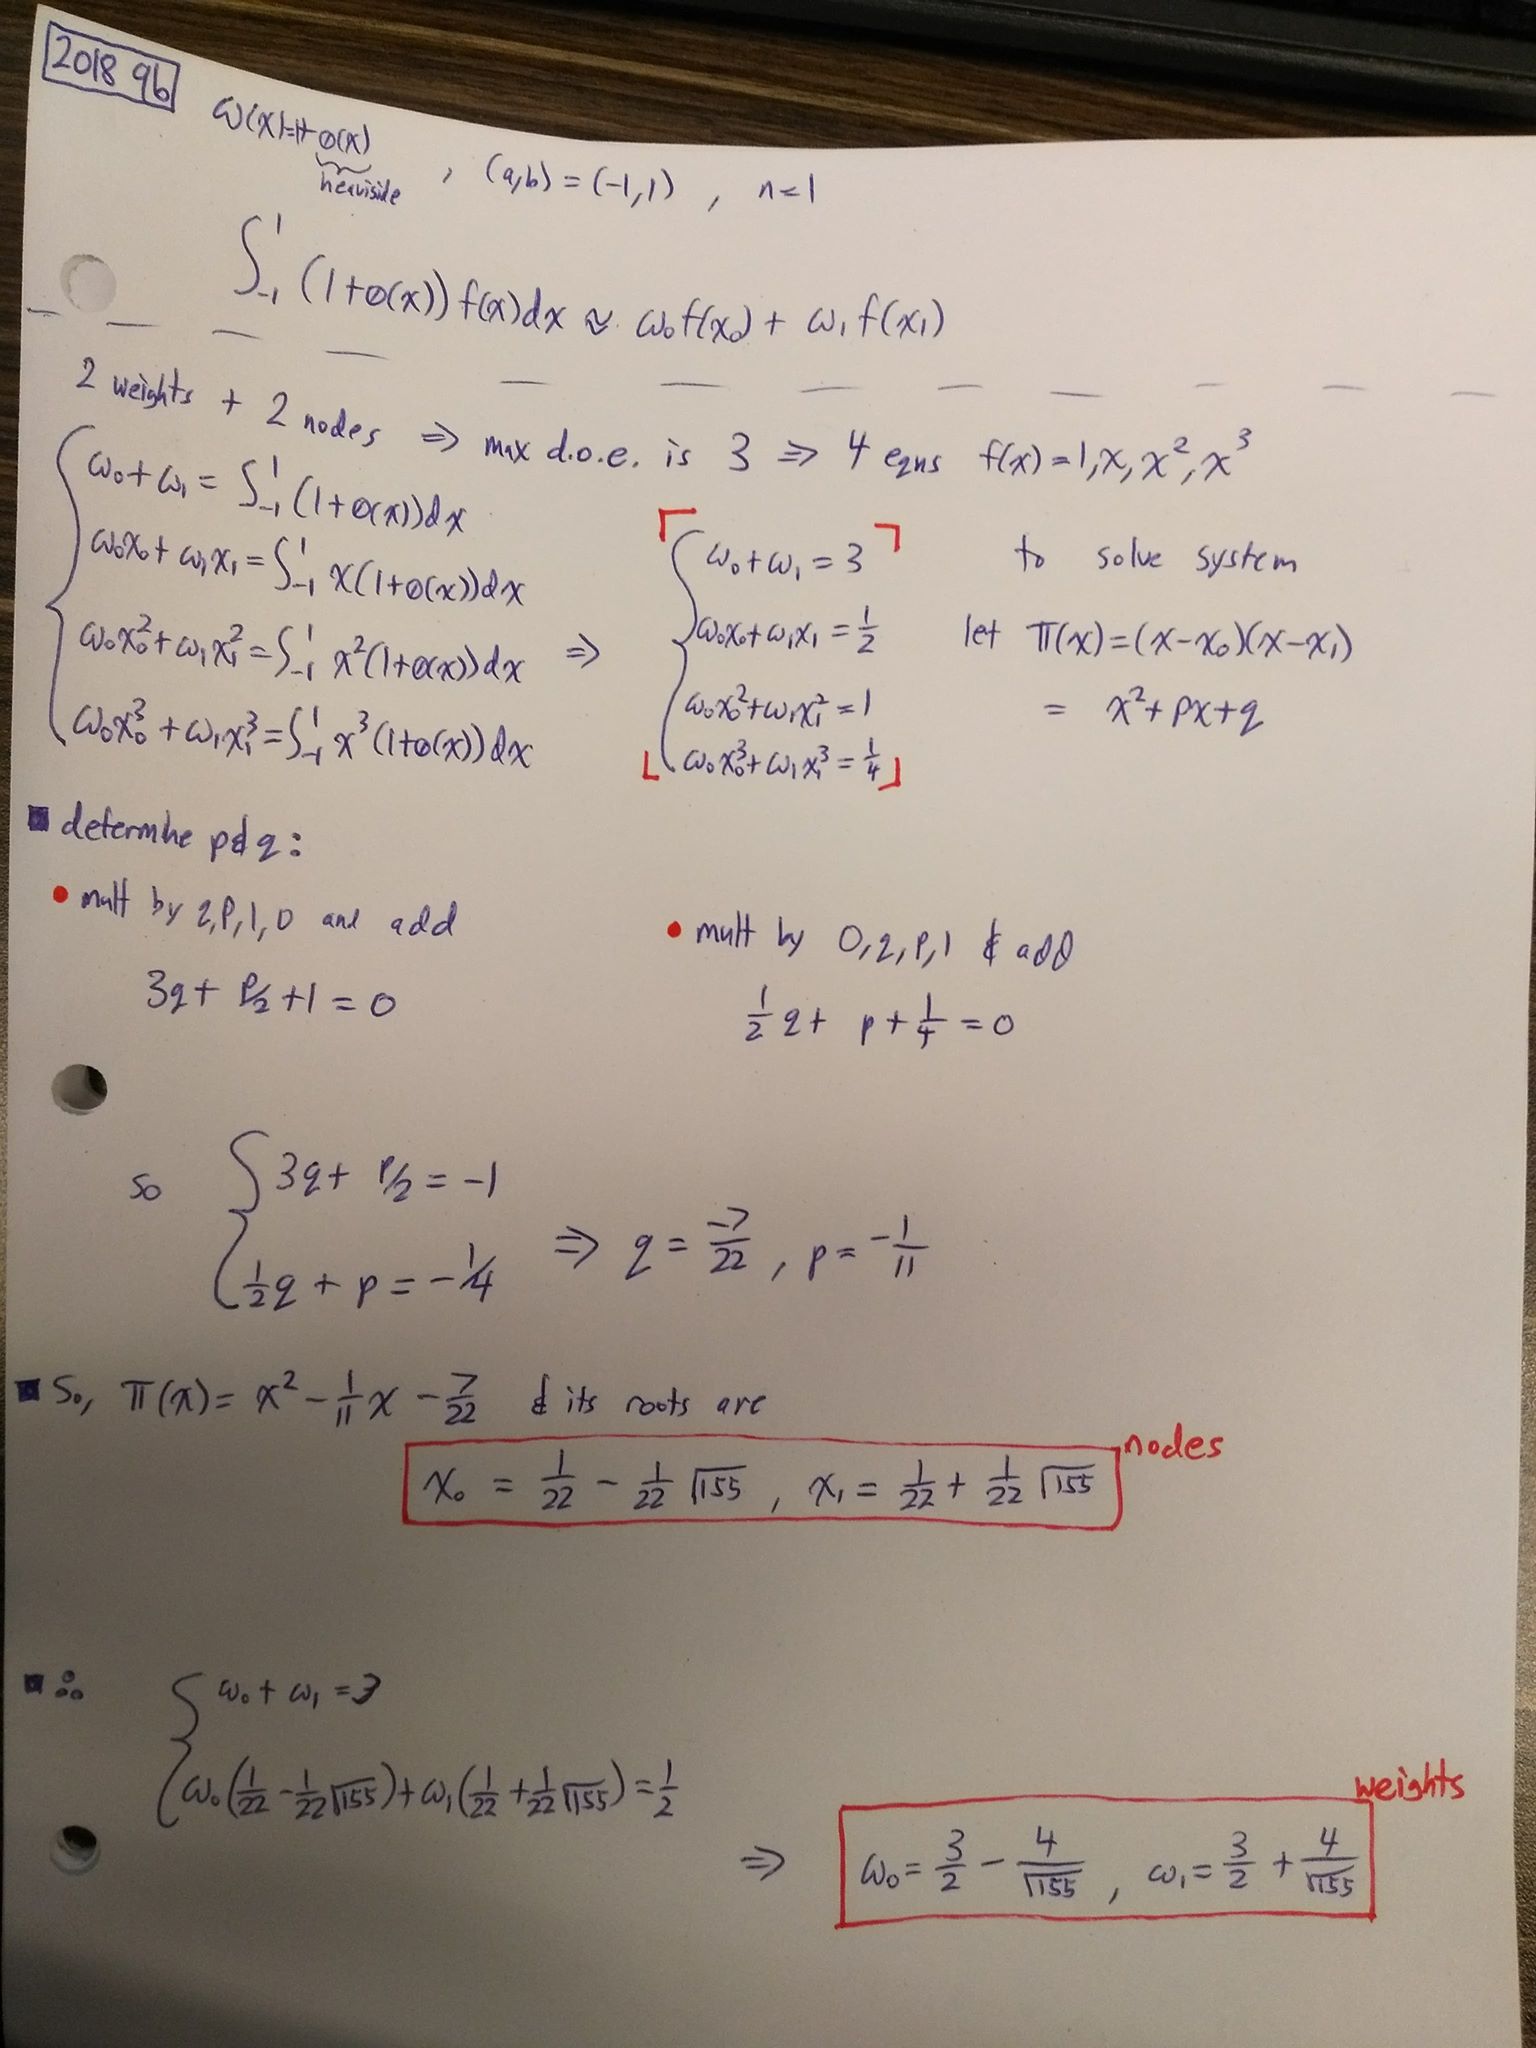 2018 9b
ω(x)=1+θ(x) , (a,b) = (-1,1) , n=1
heaviside
∫₋₁¹ (1+θ(x)) f(x)dx ≈ ω₀f(x₀) + ω₁f(x₁)
2 weights + 2 nodes ⇒ max d.o.e. is 3 ⇒ 4 eqns f(x)=1,x,x²,x³
ω₀+ω₁ = ∫₋₁¹(1+θ(x))dx
ω₀x₀+ω₁x₁=∫₋₁¹ x(1+θ(x))dx
ω₀x₀²+ω₁x₁²=∫₋₁¹ x²(1+θ(x))dx ⇒
ω₀x₀³+ω₁x₁³=∫₋₁¹ x³(1+θ(x))dx
ω₀+ω₁ = 3
ω₀x₀+ω₁x₁ = 1/2
ω₀x₀²+ω₁x₁²=1
ω₀x₀³+ω₁x₁³ = 1/4
to solve system
let π(x)=(x-x₀)(x-x₁)
= x²+px+q
determine p&q:
• mult by q,p,1,0 and add
3q+ p/2 +1 = 0
• mult by 0,q,p,1 & add
1/2 q + p + 1/4 = 0
so { 3q+ p/2 = -1
1/2 q + p = -1/4 ⇒ q = -7/22 , p = -1/11
So, π(x)= x² - 1/11 x - 7/22 & its roots are
nodes
x₀ = 1/22 - 1/22 √155 , x₁ = 1/22 + 1/22 √155
∴ { ω₀+ω₁=3
ω₀(1/22 - 1/22 √155)+ω₁(1/22 + 1/22 √155) = 1/2
weights
⇒ ω₀= 3/2 - 4/√155 , ω₁= 3/2 + 4/√155